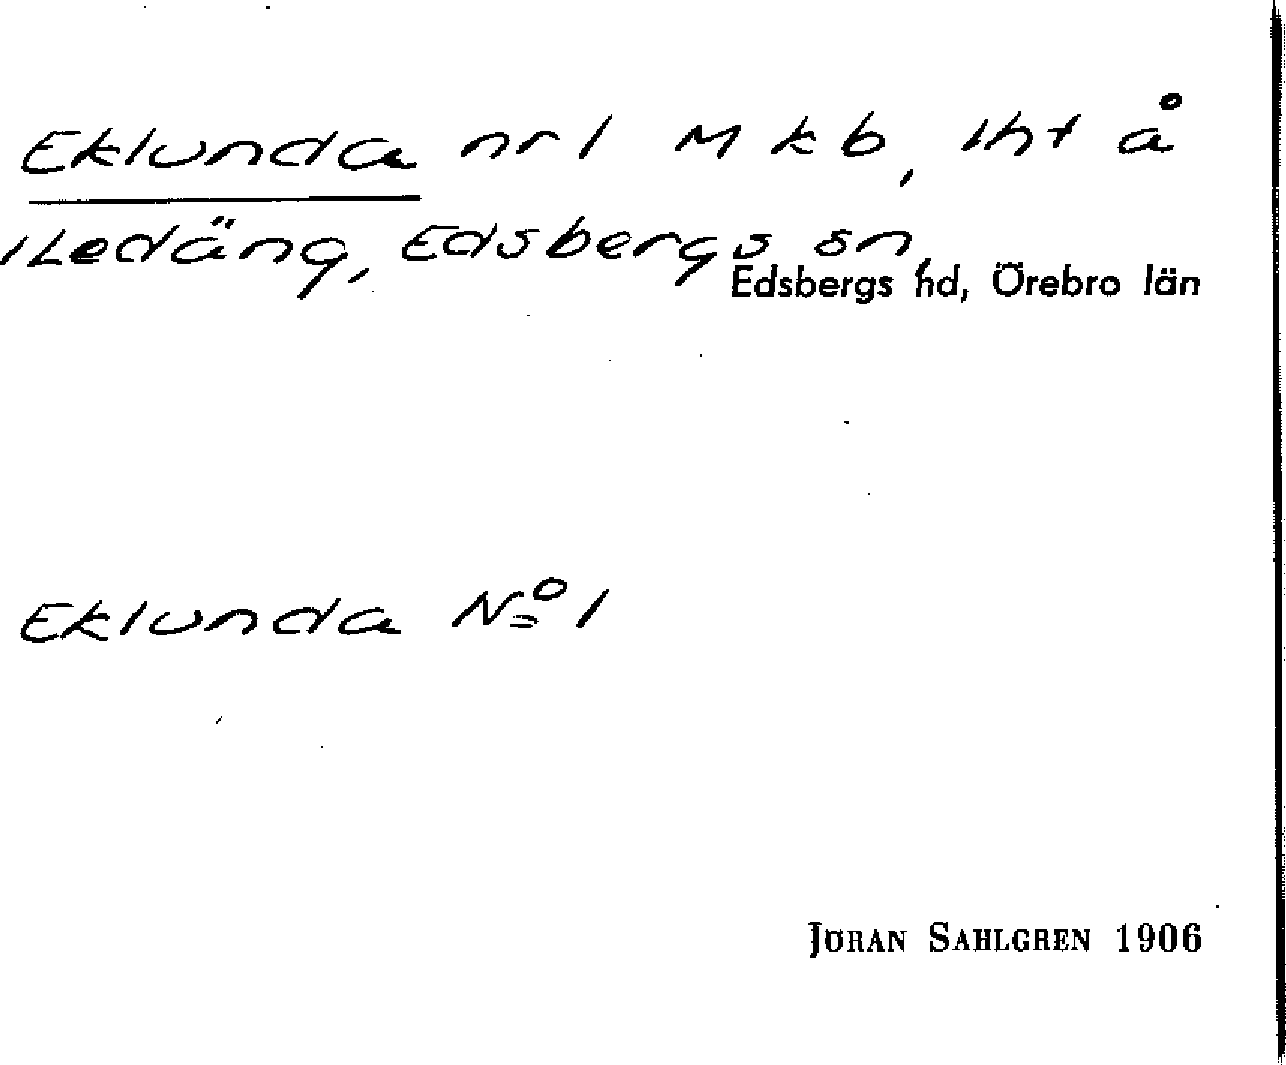 Eklunda nr 1 Mkb, lht å
1 Ledäng, Edsbergs sn,
Edsbergs hd, Örebro län
Eklunda No 1
JÖRAN SAHLGREN 1906